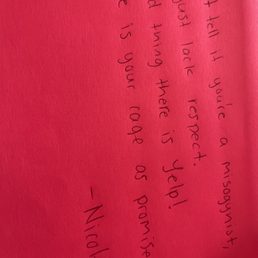 t tell if you're a misogynist,
just lack respect.
d thing there is Yelp!
e is your cage as promise
-Nicol